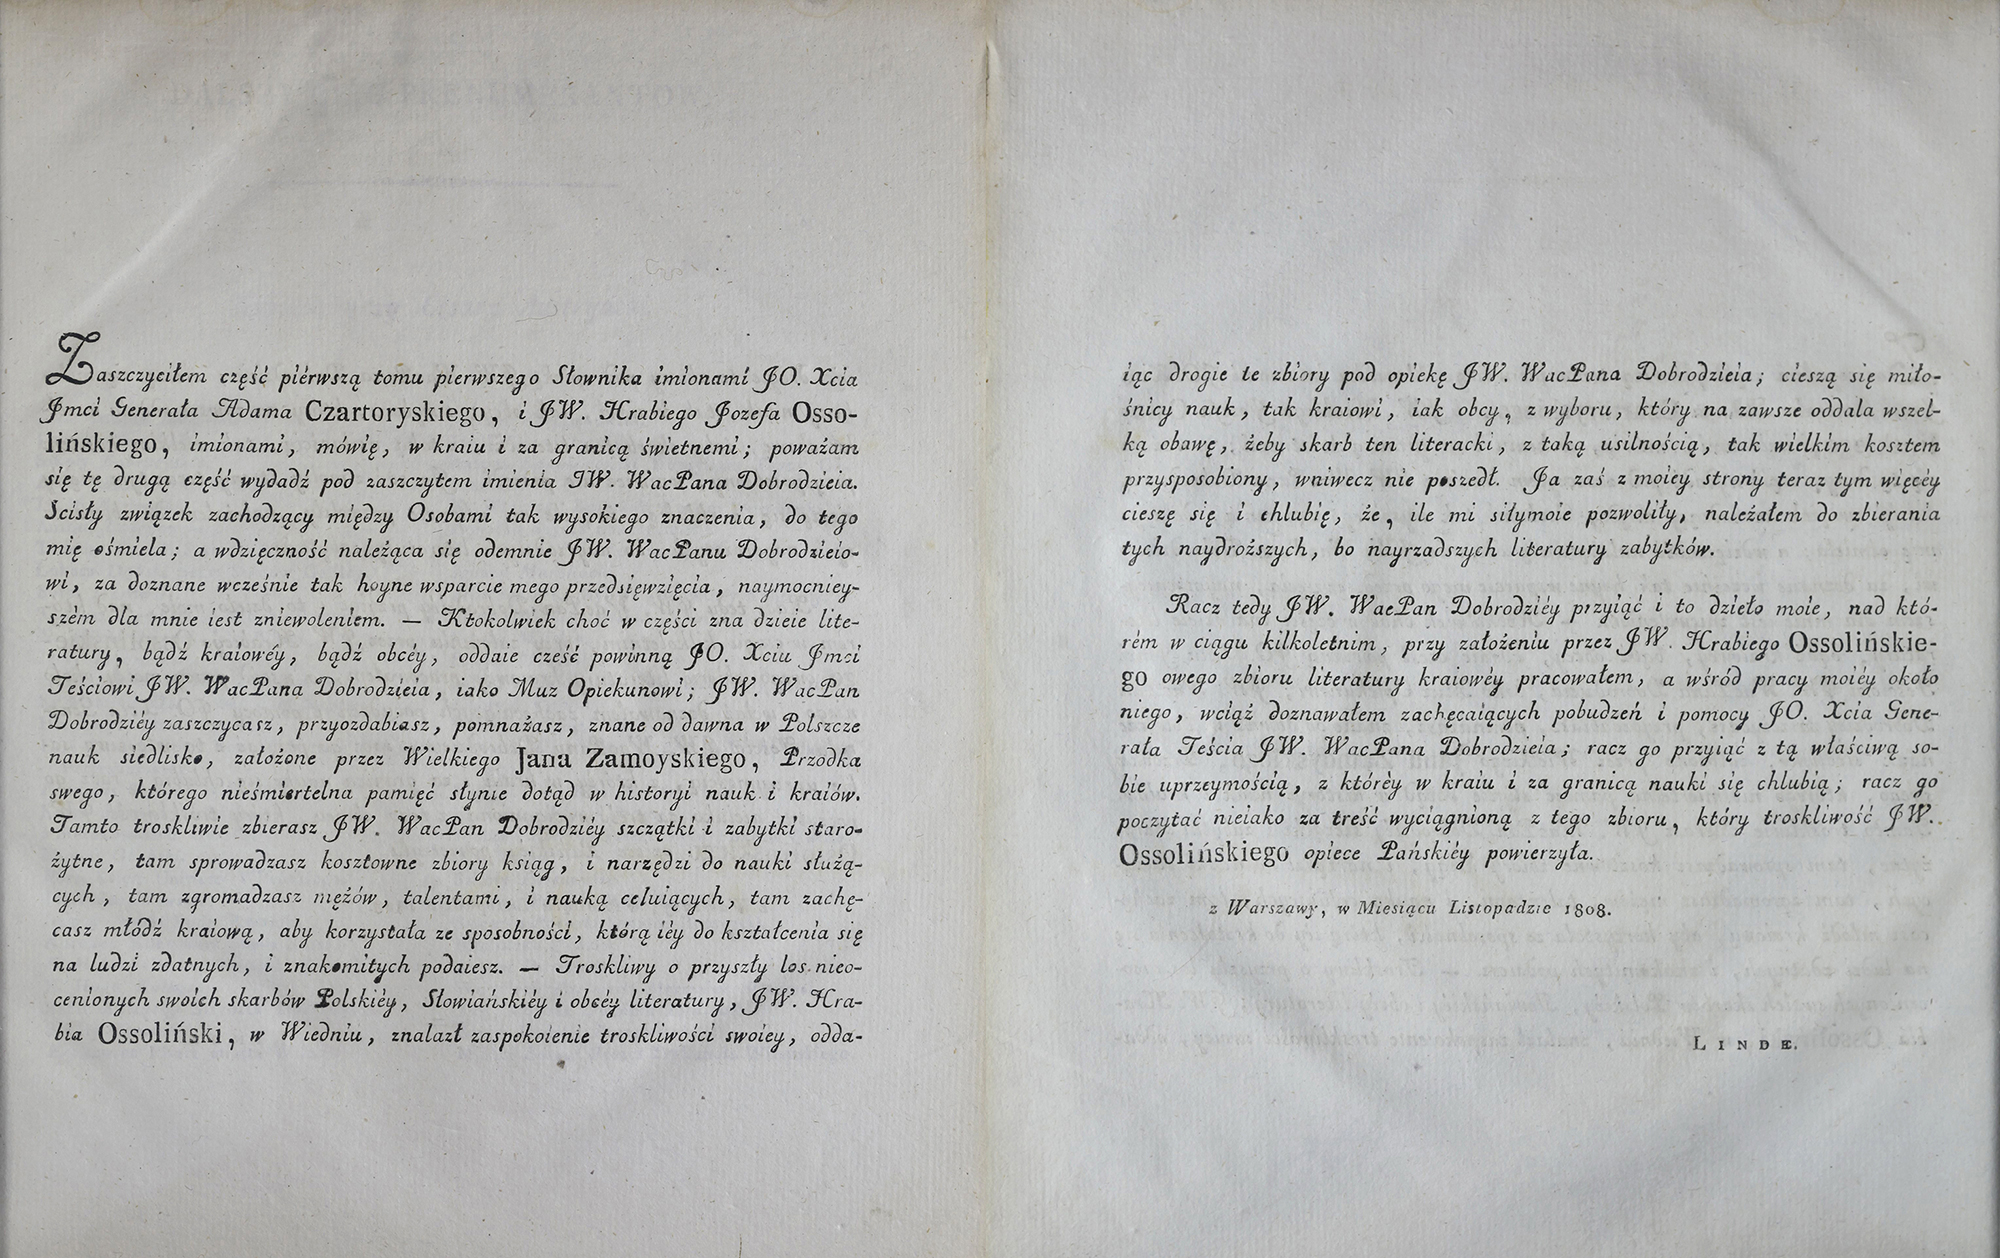 Zaszczyciłem część piérwszą tomu pierwszego Słownika imionami JO. Xcia
Jmci Generała Adama Czartoryskiego, i JW. Hrabiego Jozefa Osso-
lińskiego, imionami, mówię, w kraiu i za granicą świetnemi; poważam
się tę drugą część wydadź pod zaszczytem imienia JW. WacPana Dobrodzieia.
Ścisły związek zachodzący między Osobami tak wysokiego znaczenia, do tego
mię ośmiela; a wdzięczność należąca się odemnie JW. WacPanu Dobrodzieio-
wi, za doznane wcześnie tak hoyne wsparcie mego przedsięwzięcia, naymocniey-
szém dla mnie iest zniewoleniem. — Ktokolwiek choć w części zna dzieie lite-
ratury, bądź kraiowéy, bądź obcéy, oddaie cześć powinną JO. Xciu Jmci
Teściowi JW. WacPana Dobrodzieia, iako Muz Opiekunowi; JW. WacPan
Dobrodziéy zaszczycasz, przyozdabiasz, pomnażasz, znane od dawna w Polszcze
nauk siedlisko, założone przez Wielkiego Jana Zamoyskiego, Przodka
swego, którego nieśmiertelna pamięć słynie dotąd w historyi nauk i kraiów.
Tamto troskliwie zbierasz JW. WacPan Dobrodziéy szczątki i zabytki staro-
żytne, tam sprowadzasz kosztowne zbiory ksiąg, i narzędzi do nauki służą-
cych, tam zgromadzasz mężów, talentami, i nauką celuiących, tam zachę-
casz młódź kraiową, aby korzystała ze sposobności, którą iéy do kształcenia się
na ludzi zdatnych, i znakomitych podaiesz. — Troskliwy o przyszły los nieo-
cenionych swoich skarbów Polskiéy, Słowiańskiéy i obcéy literatury, JW. Hra-
bia Ossoliński, w Wiedniu, znalazł zaspokoienie troskliwości swoiey, odda-
iąc drogie te zbiory pod opiekę JW. WacPana Dobrodzieia; cieszą się miło-
śnicy nauk, tak kraiowi, iak obcy, z wyboru, który na zawsze oddala wszel-
ką obawę, żeby skarb ten literacki, z taką usilnością, tak wielkim kosztem
przysposobiony, wniwecz nie poszedł. Ja zaś z moiey strony teraz tym więcéy
cieszę się i chlubię, że, ile mi siłymoie pozwoliły, należałem do zbierania
tych naydroższych, bo nayrzadszych literatury zabytków.
Racz tedy JW. WacPan Dobrodziéy przyiąć i to dzieło moie, nad któ-
rém w ciągu kilkoletnim, przy założeniu przez JW. Hrabiego Ossolińskie-
go owego zbioru literatury kraiowéy pracowałem, a wśród pracy moiéy około
niego, wciąż doznawałem zachęcaiących pobudzeń i pomocy JO. Xcia Gene-
rała Teścia JW. WacPana Dobrodzieia; racz go przyiąć z tą właściwą so-
bie uprzeymością, z któréy w kraiu i za granicą nauki się chlubią; racz go
poczytać nieiako za treść wyciągnioną z tego zbioru, który troskliwość JW.
Ossolińskiego opiece Pańskiéy powierzyła.
z Warszawy, w Miesiącu Listopadzie 1808.
LINDE.